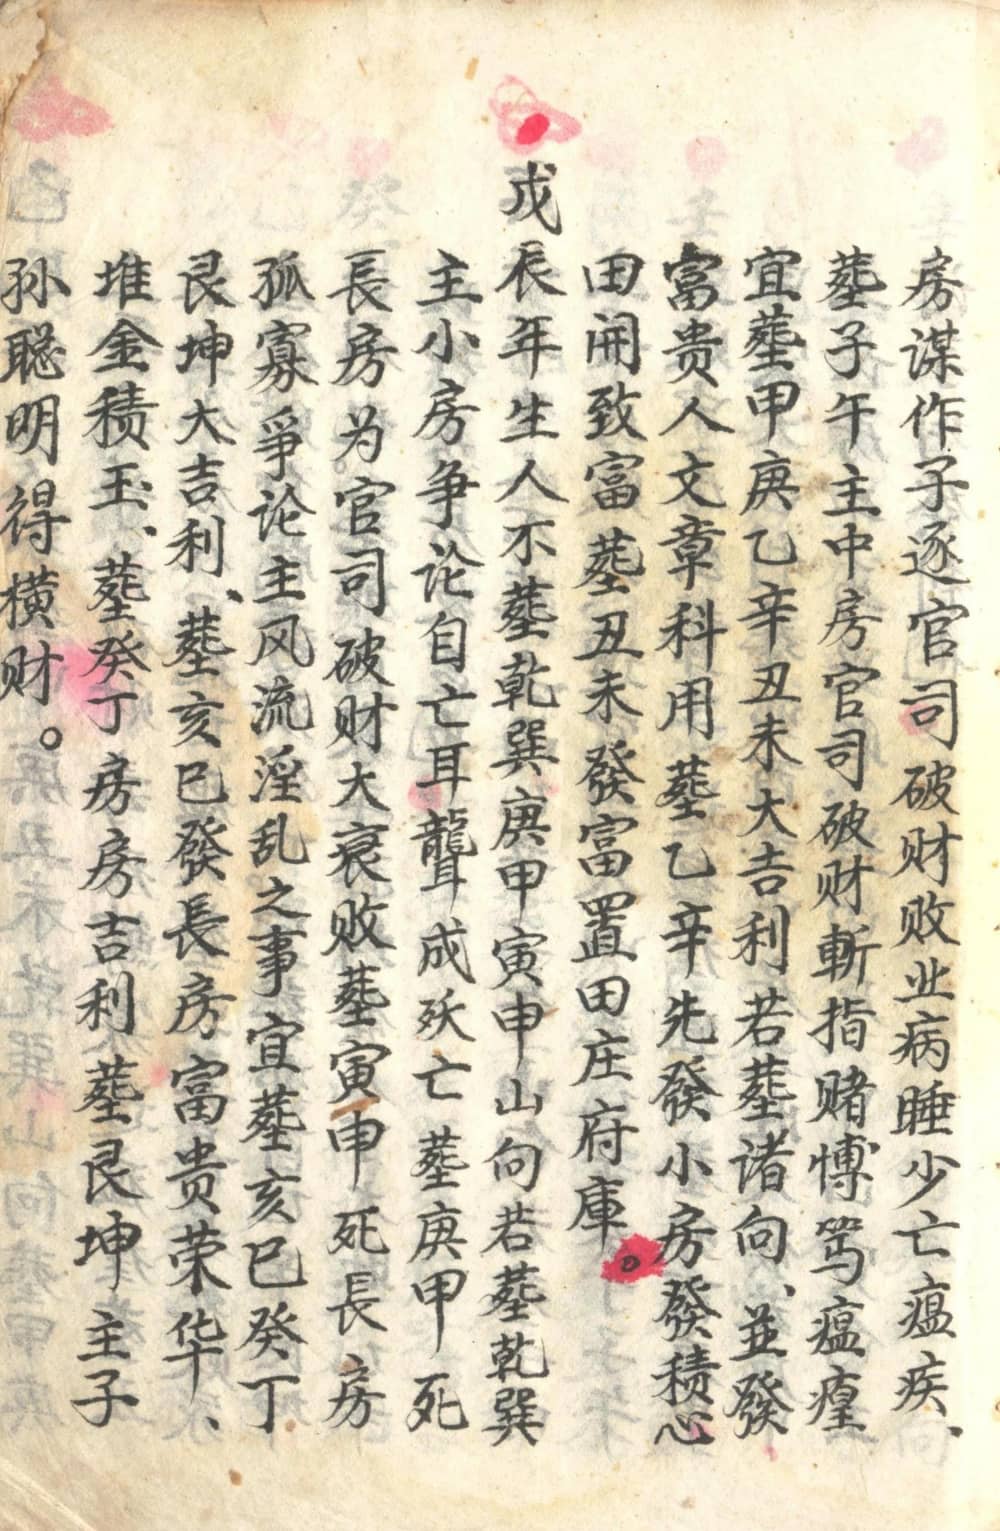 房谋作子逐官司破财败业病睡少亡瘟疾、
塟子午主中房官司破财斬指赌博笃瘟瘽
宜塟甲庚乙辛丑未大吉利若塟诸向、並發
富贵人文章科用塟乙辛先發小房發積心
田開致富塟丑未發富置田庄府庫。
戊辰年生人不塟乾巽庚甲寅申山向若塟乾巽
主小房争论自亡耳聾成殀亡塟庚甲死
長房为官司破财大衰败塟寅申死長房
孤寡爭论主风流淫乱之事宜塟亥巳癸丁
艮坤大吉利、塟亥巳發長房富贵荣华、
堆金積玉、塟癸丁房房吉利塟艮坤主子
孙聪明得橫财。